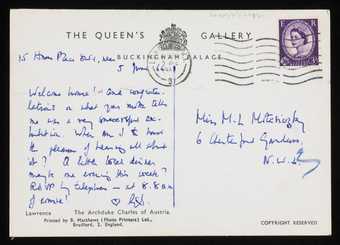 THE QUEEN'S GALLERY
BUCKINGHAM PALACE
15 Place
5 June
Welcome home! and congratu-
lations on what you write tells
me was a very successful ex-
hibition. When am I to have
the pleasure of hearing all about
it? A little local dinner
maybe one evening this week?
RSVP by telephone — at 8.8 am
of course!
Miss M. L.
6 Gardens,
N.W.
Lawrence The Archduke Charles of Austria.
Printed by B. Matthews (Photo Printers) Ltd.,
Bradford, 2, England.
COPYRIGHT RESERVED